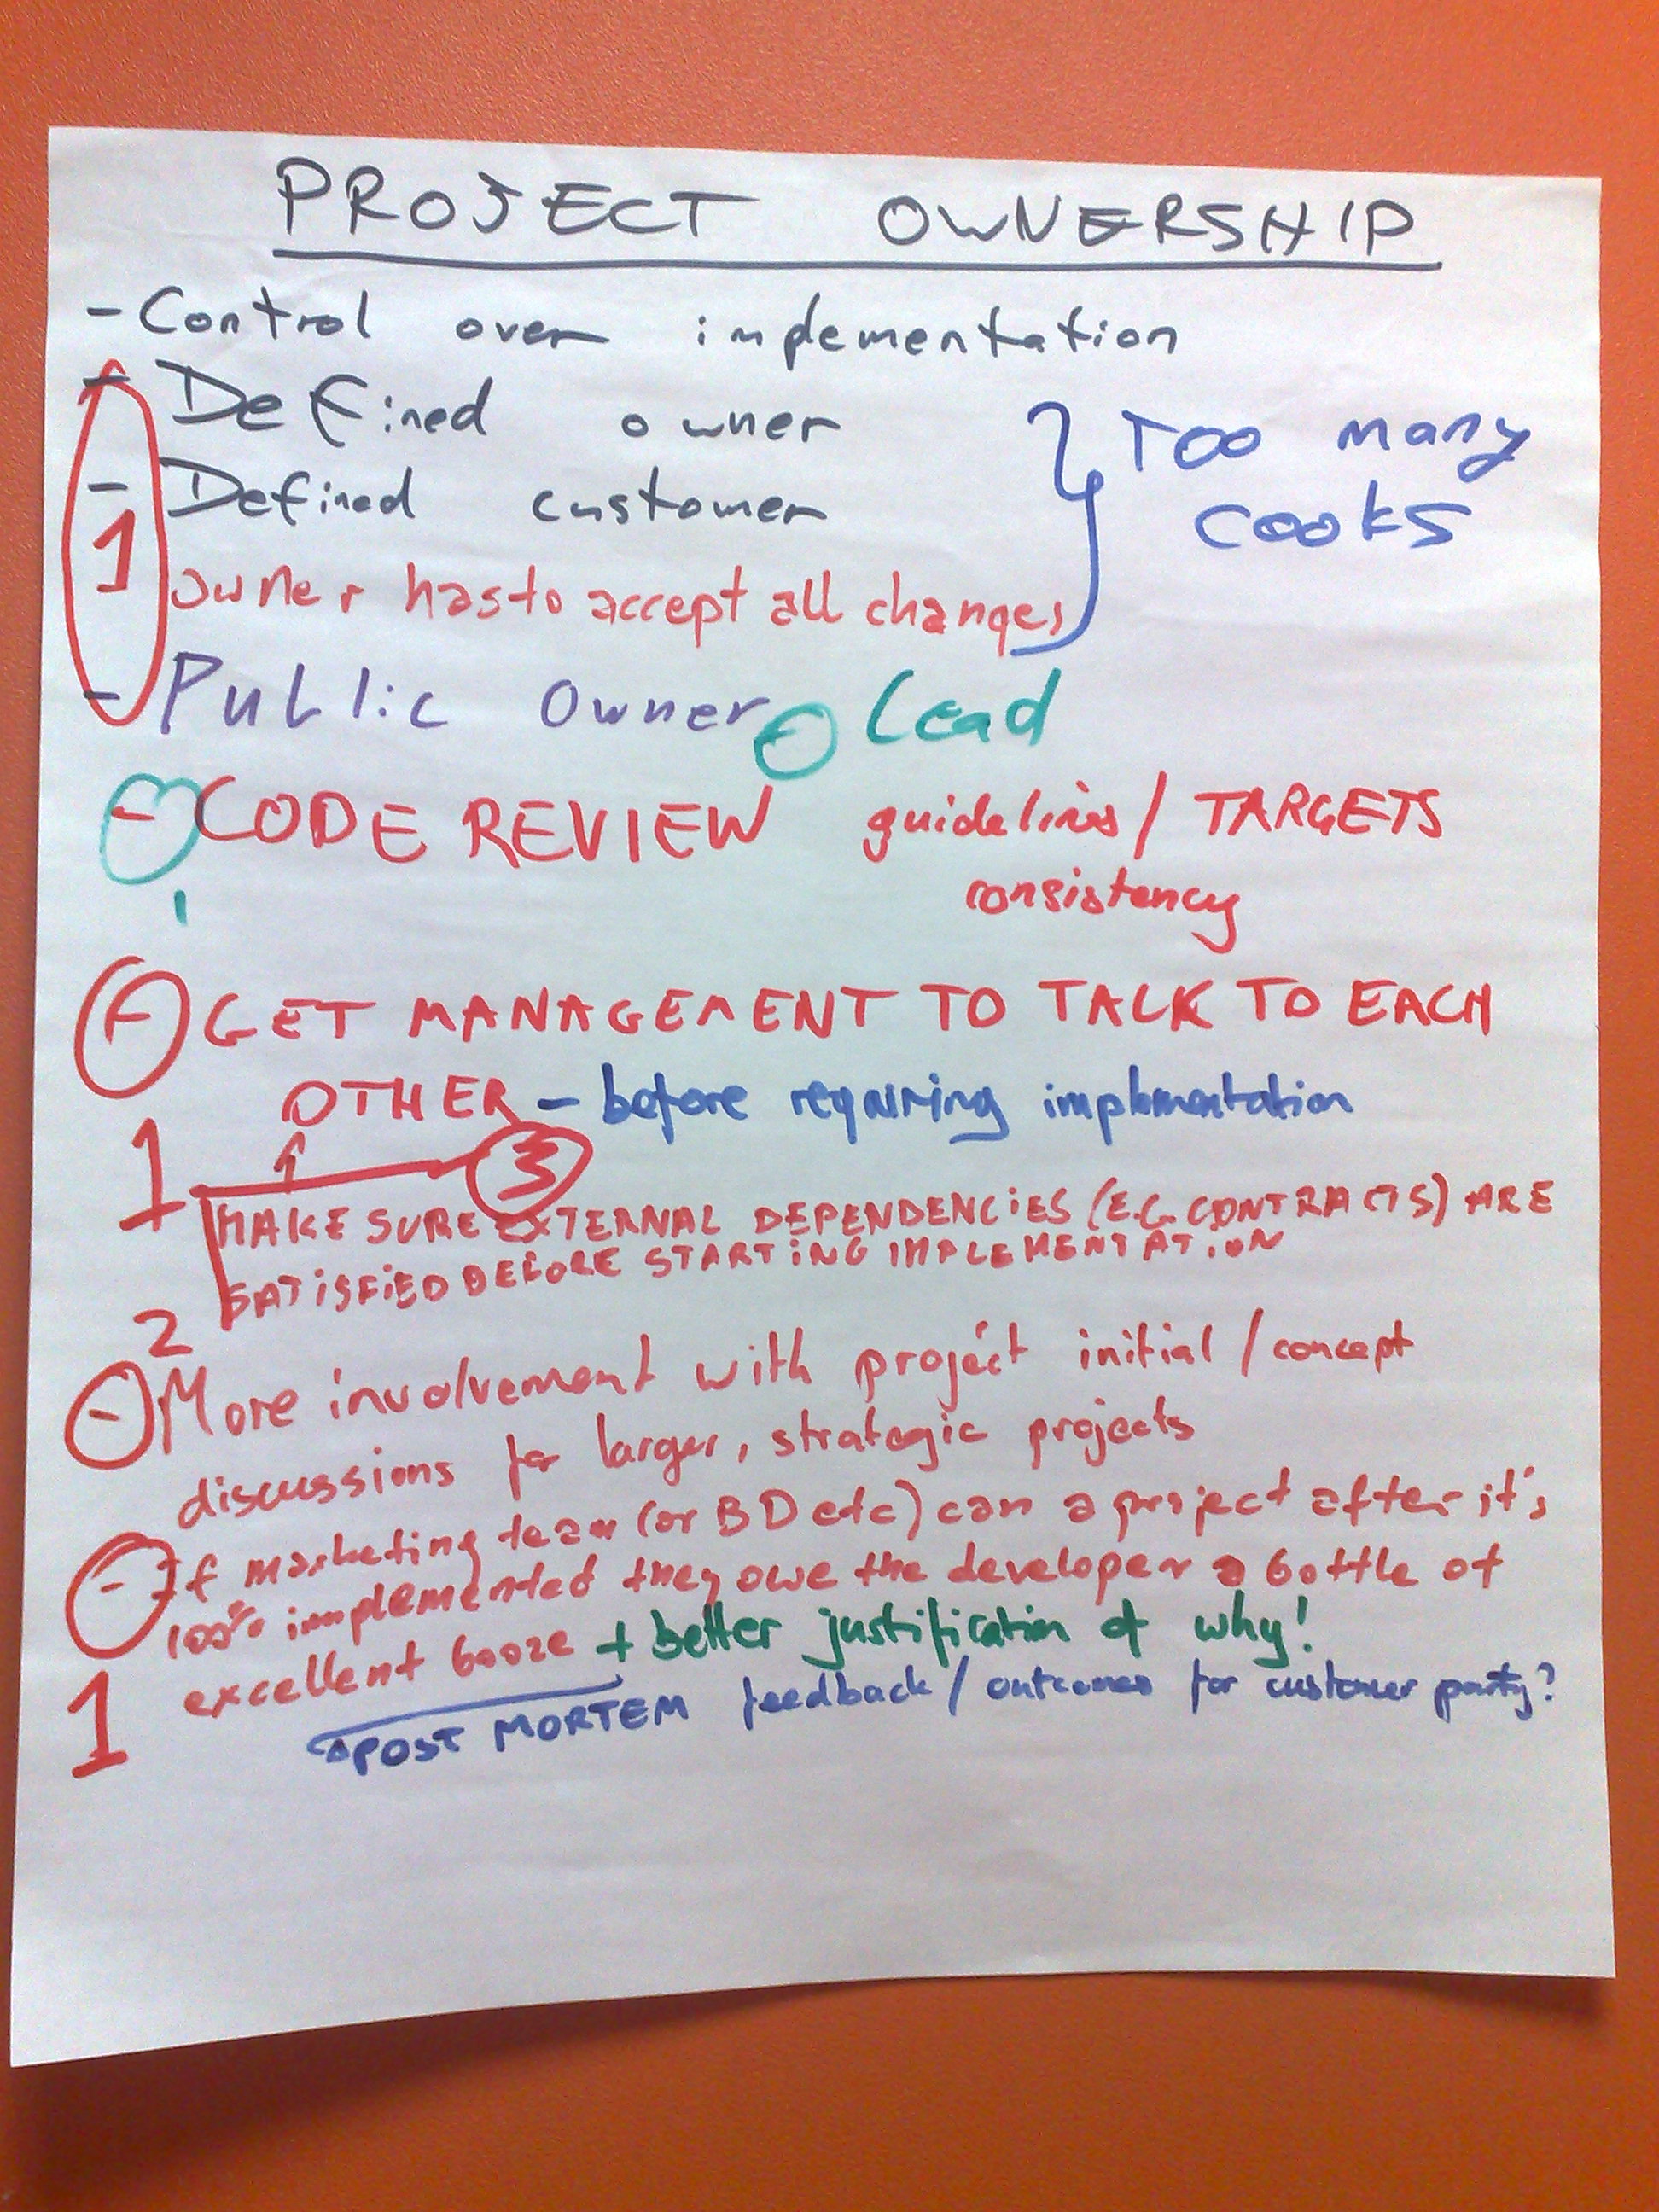 PROJECT OWNERSHIP
- Control over implementation
- Defined owner
- Defined customer
} Too many
cooks
1
owner has to accept all changes
- Public Owner - Lead
- CODE REVIEW guidelines / TARGETS
consistency
1
- GET MANAGEMENT TO TALK TO EACH
OTHER - before requiring implementation
1
3
MAKE SURE EXTERNAL DEPENDENCIES (E.G. CONTRACTS) ARE
SATISFIED BEFORE STARTING IMPLEMENTATION
2
- More involvement with project initial / concept
discussions for larger, strategic projects
- If marketing team (or BD etc) can a project after it's
100% implemented they owe the developer a bottle of
excellent booze + better justification of why!
1
POST MORTEM feedback / outcomes for customer party?